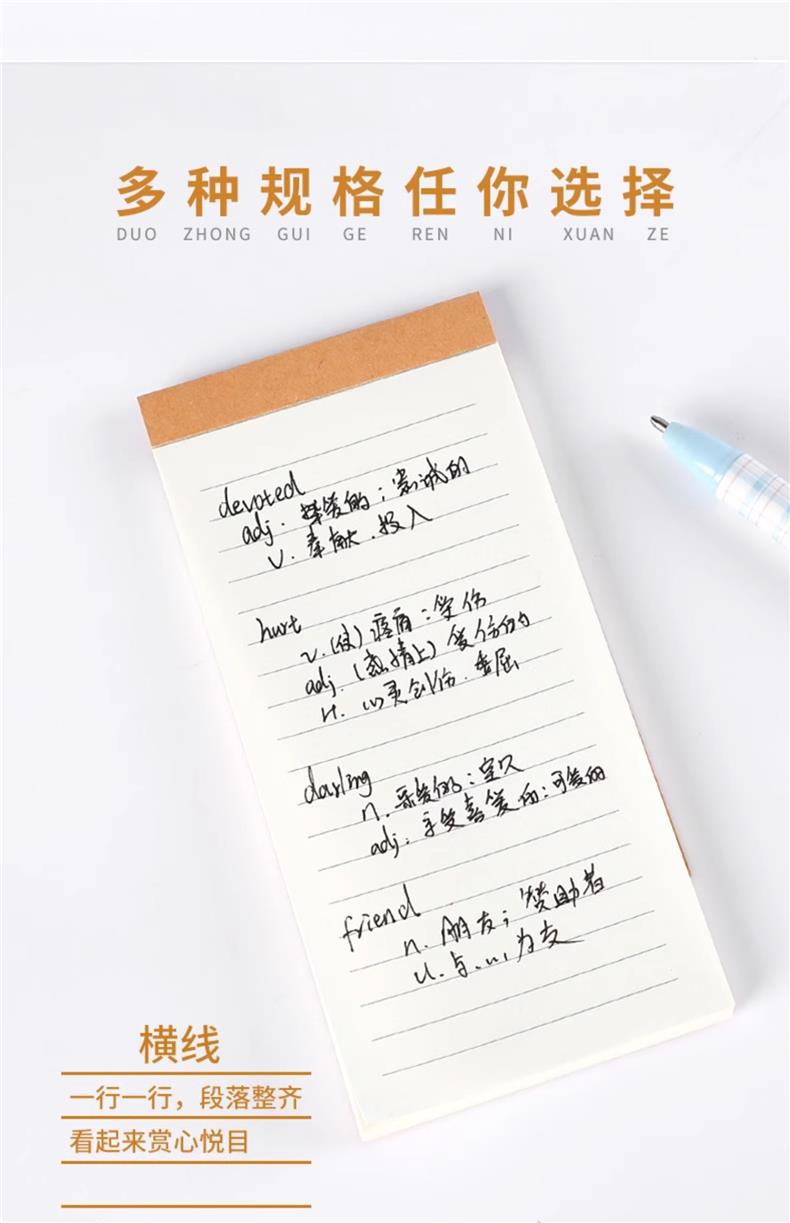 多种规格任你选择
DUO ZHONG GUI GE REN NI XUAN ZE
devoted
adj. 挚爱的；忠诚的
v. 奉献.投入
hurt
v.(使)疼痛：受伤
adj.(感情上)受伤的
n. 心灵创伤.委屈
darling
n. 亲爱的：宝贝
adj. 喜爱的：可爱的
friend
n. 朋友；赞助者
v. 与...为友
横线
一行一行，段落整齐
看起来赏心悦目